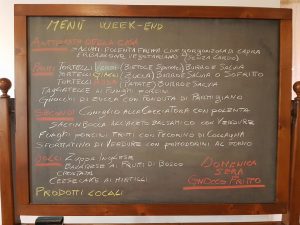 MENÙ WEEK-END
ANTIPASTO DELLA CASA
POLENTA FRITTA CON GORGONZOLA DI CAPRA
VEGETARIANO (SENZA CARNE)
PRIMI TORTELLI VERDI (BIETOLE SPINACI) BURRO E SALVIA
TORTELLI GIALLI (ZUCCA) BURRO E SALVIA O SOFFRITTO
TORTELLI ROSSI (PATATE) BURRO E SALVIA
TAGLIATELLE AI FUNGHI PORCINI
GNOCCHI DI ZUCCA CON FONDUTA DI PARMIGIANO
SECONDI CONIGLIO ALLA CACCIATORA CON POLENTA
SALTINBOCCA ALL'ACETO BALSAMICO CON VERDURE
FUNGHI PORCINI FRITTI CON PECORINO DI COLLAGNA
SFORMATINO DI VERDURE CON POMODORINI AL FORNO
DOLCI ZUPPA INGLESE
BAVARESE AI FRUTTI DI BOSCO
CROSTATA
CEESECAKE AI MIRTILLI
DOMENICA
SERA
GNOCCO FRITTO
PRODOTTI LOCALI